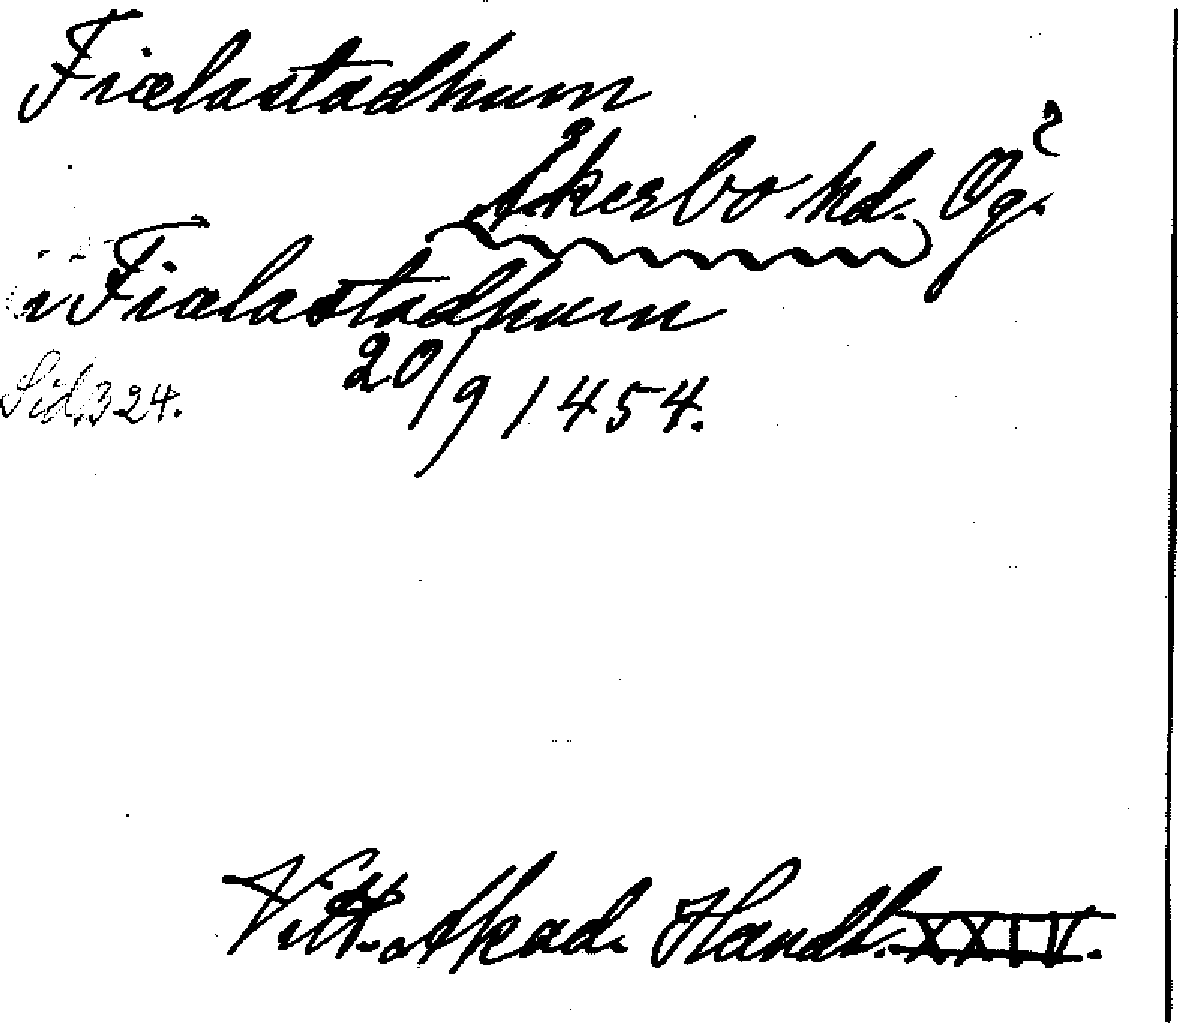 Fiælastadhum
Åkerbo hd. Ög. ?
i Fiælastadhum
Sid. 324. 20/9 1454.
Vitt. Akad. Handl. XXIV.